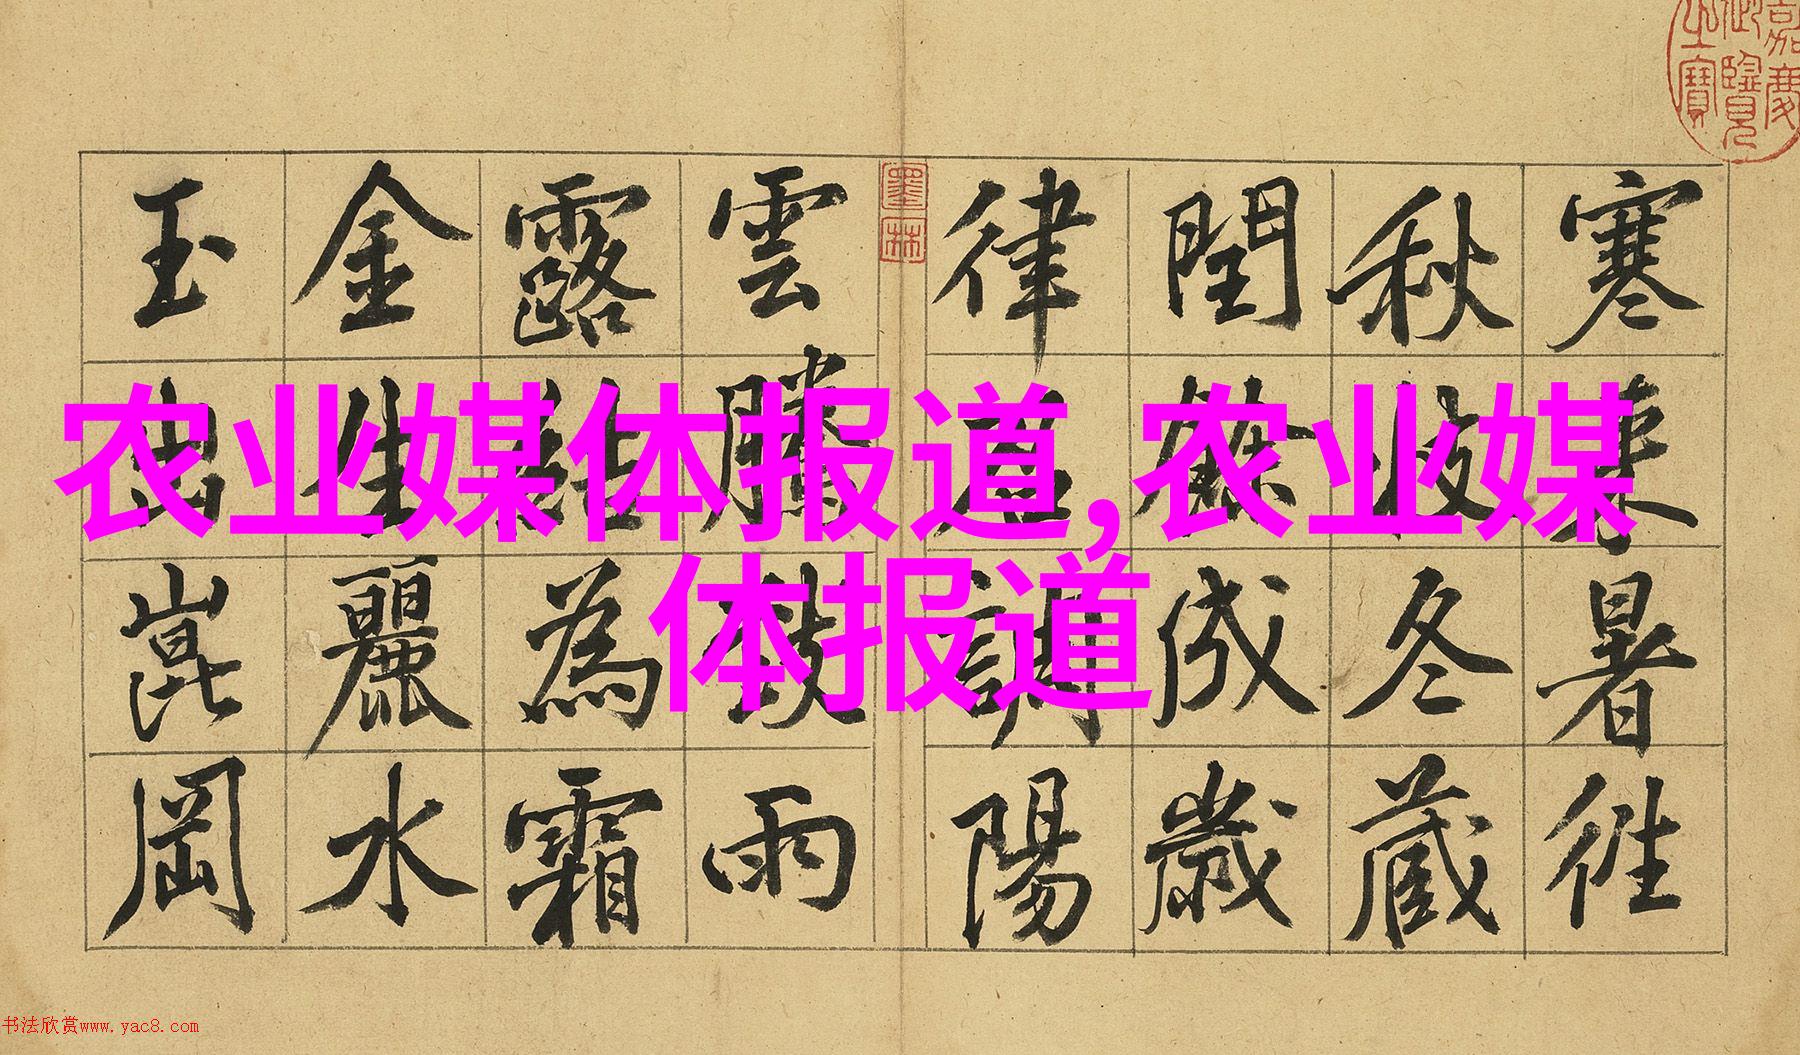 嘉慶
御覽
之寶
寒來暑徃
秋收冬蔵
閏餘成歲
律呂調陽
墨林
雲騰致雨
露結為霜
金生麗水
玉出崑岡
农业媒体报道,农业媒
体报道
书法欣赏www.yac8.com